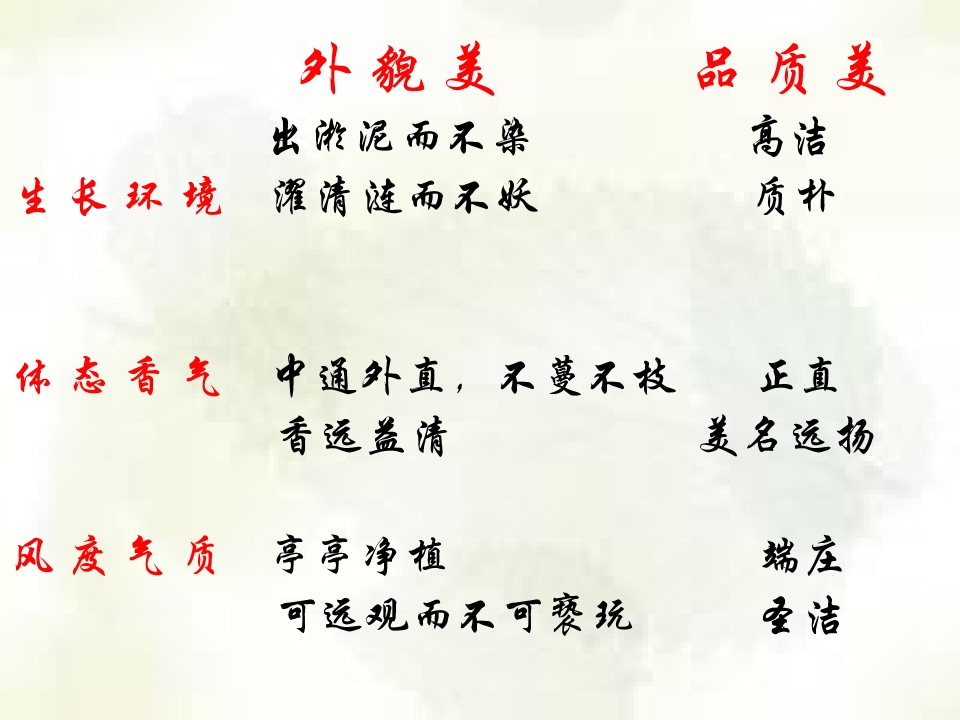 外貌美 品质美
出淤泥而不染 高洁
生长环境 濯清涟而不妖 质朴
体态香气 中通外直，不蔓不枝 正直
香远益清 美名远扬
风度气质 亭亭净植 端庄
可远观而不可亵玩 圣洁